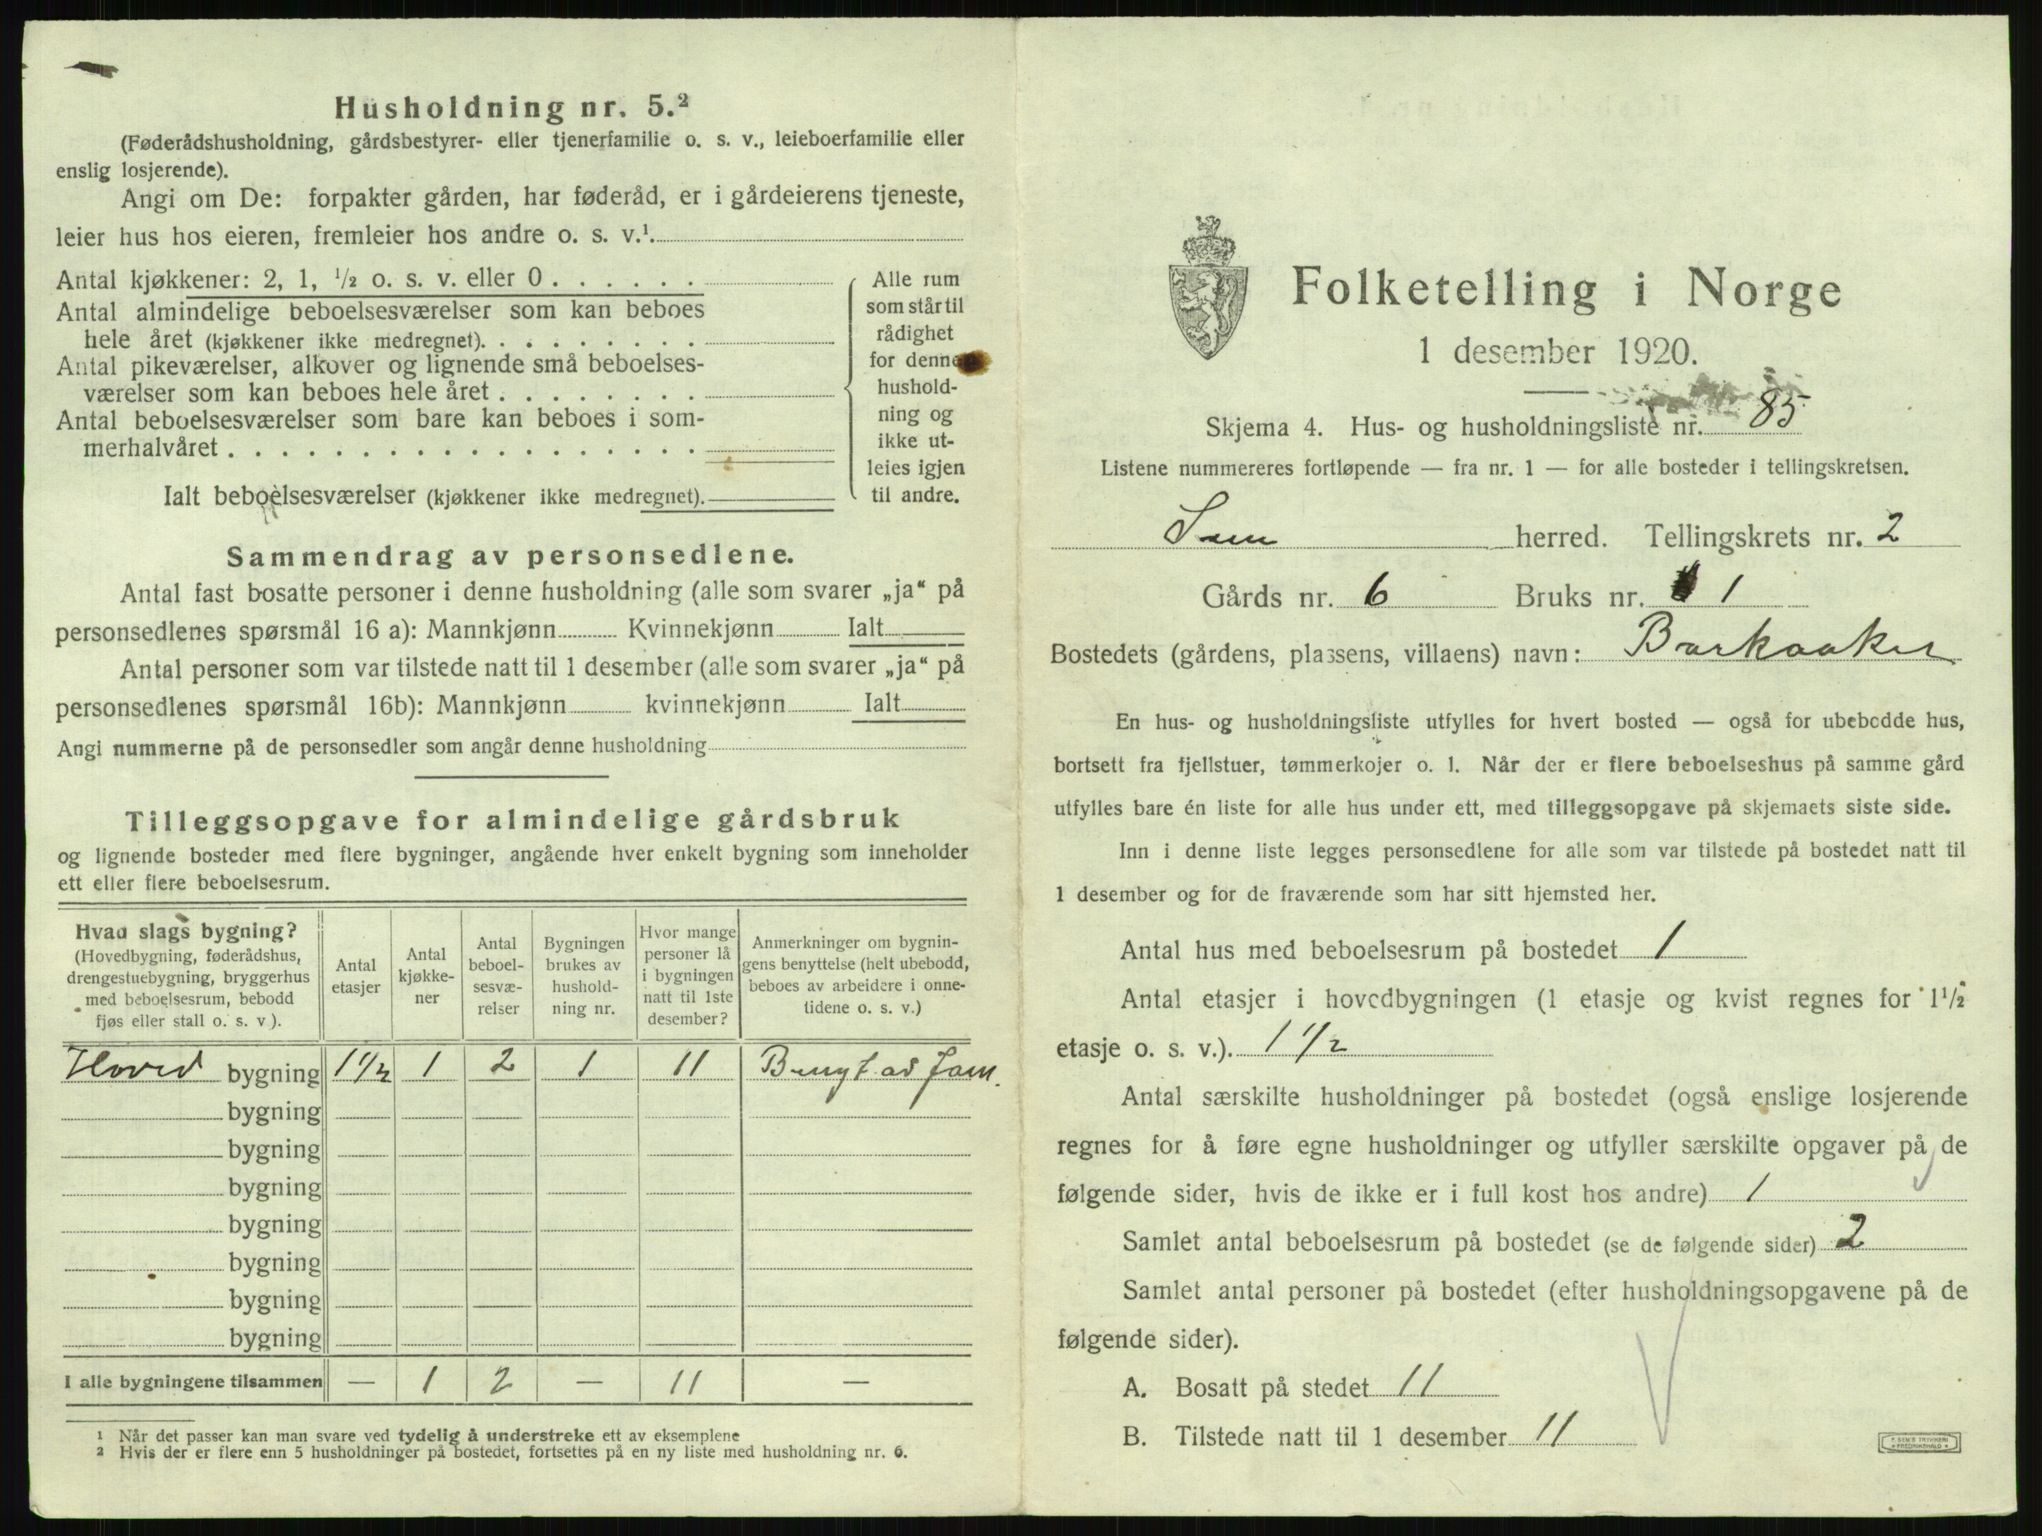 Husholdning nr. 5.²
(Føderådshusholdning, gårdsbestyrer- eller tjenerfamilie o. s. v., leieboerfamilie eller
enslig losjerende).
Angi om De: forpakter gården, har føderåd, er i gårdeierens tjeneste,
leier hus hos eieren, fremleier hos andre o. s. v.¹.
Antal kjøkkener: 2, 1, ½ o. s. v. eller 0 . . . . . .
Antal almindelige beboelsesværelser som kan beboes
hele året (kjøkkener ikke medregnet). . . . . . . . .
Antal pikeværelser, alkover og lignende små beboelses-
værelser som kan beboes hele året . . . . . . . .
Antal beboelsesværelser som bare kan beboes i som-
merhalvåret . . . . . . . . . . . . . . . . . .
Ialt beboelsesværelser (kjøkkener ikke medregnet).
Alle rum
som står til
rådighet
for denne
hushold-
ning og
ikke ut-
leies igjen
til andre.
Sammendrag av personsedlene.
Antal fast bosatte personer i denne husholdning (alle som svarer „ja“ på
personsedlenes spørsmål 16 a): Mannkjønn Kvinnekjønn Ialt
Antal personer som var tilstede natt til 1 desember (alle som svarer „ja“ på
personsedlenes spørsmål 16b): Mannkjønn kvinnekjønn Ialt
Angi nummerne på de personsedler som angår denne husholdning
Tilleggsopgave for almindelige gårdsbruk
og lignende bosteder med flere bygninger, angående hver enkelt bygning som inneholder
ett eller flere beboelsesrum.
Hvad slags bygning?
(Hovedbygning, føderådshus,
drengestuebygning, bryggerhus
med beboelsesrum, bebodd
fjøs eller stall o. s. v ).
Antal
etasjer
Antal
kjøkke-
ner
Antal
beboel-
sesvæ-
relser
Bygningen
brukes av
hushold-
ning nr.
Hvor mange
personer lå
i bygningen
natt til 1ste
desember?
Anmerkninger om bygnin-
gens benyttelse (helt ubebodd,
beboes av arbeidere i onne-
tidene o. s. v.)
Hoved bygning 1 1/2 1 2 1 11
bygning
bygning
bygning
bygning
bygning
bygning
bygning
I alle bygningene tilsammen — 1 2 — 11 —
¹ Når det passer kan man svare ved tydelig å understreke ett av eksemplene
² Hvis der er flere enn 5 husholdninger på bostedet, fortsettes på en ny liste med husholdning nr. 6.
Folketelling i Norge
1 desember 1920.
Skjema 4. Hus- og husholdningsliste nr. 85
Listene nummereres fortløpende — fra nr. 1 — for alle bosteder i tellingskretsen.
Sem herred. Tellingskrets nr. 2
Gårds nr. 6 Bruks nr. 1
Bostedets (gårdens, plassens, villaens) navn: Barkaaker
En hus- og husholdningsliste utfylles for hvert bosted — også for ubebodde hus,
bortsett fra fjellstuer, tømmerkojer o. l. Når der er flere beboelseshus på samme gård
utfylles bare én liste for alle hus under ett, med tilleggsopgave på skjemaets siste side.
Inn i denne liste legges personsedlene for alle som var tilstede på bostedet natt til
1 desember og for de fraværende som har sitt hjemsted her.
Antal hus med beboelsesrum på bostedet 1
Antal etasjer i hovedbygningen (1 etasje og kvist regnes for 1½
etasje o. s. v.). 1 1/2
Antal særskilte husholdninger på bostedet (også enslige losjerende
regnes for å føre egne husholdninger og utfyller særskilte opgaver på de
følgende sider, hvis de ikke er i full kost hos andre) 1
Samlet antal beboelsesrum på bostedet (se de følgende sider) 2
Samlet antal personer på bostedet (efter husholdningsopgavene på de
følgende sider).
A. Bosatt på stedet 11
B. Tilstede natt til 1 desember 11